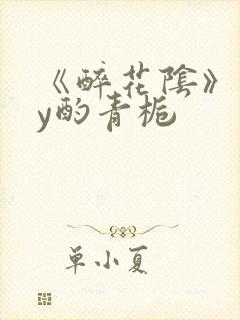 《醉花陰》
y酌青栀
单小夏